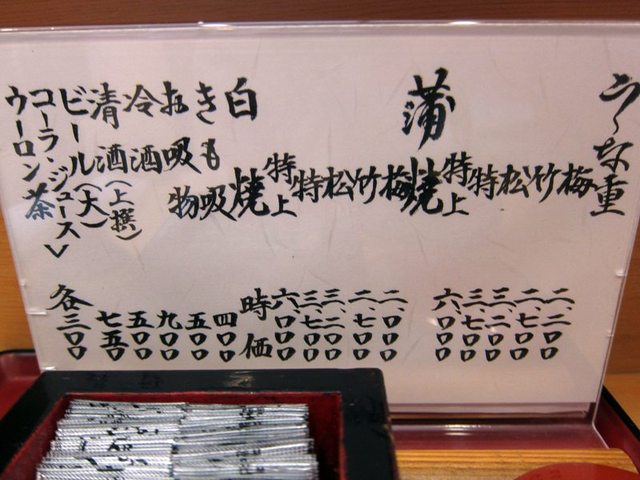 うな重
梅 二、二〇〇
竹 二、七〇〇
松 三、二〇〇
特 三、七〇〇
特上 六、〇〇〇
蒲焼
梅 二、二〇〇
竹 二、七〇〇
松 三、二〇〇
特 三、七〇〇
特上 六、〇〇〇
白焼 時価
きも吸 四〇〇
お吸物 五〇〇
冷酒 九〇〇
清酒(上撰) 五〇〇
ビール(大) 七五〇
コーラ・ジュース
ウーロン茶 各三〇〇